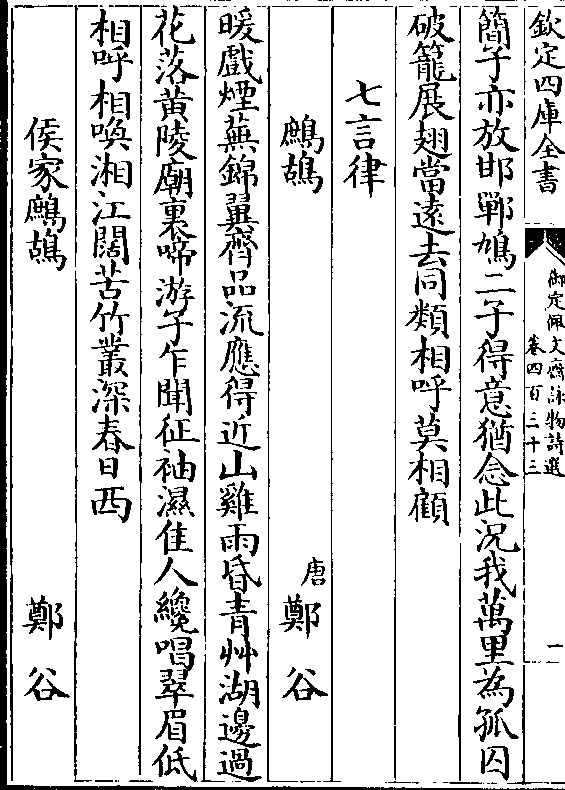 欽定四庫全書
御定佩文齋詠物詩選
卷四百三十三
一
簡子亦放邯鄲鳩二子得意猶念此况我萬里為孤囚
破籠展翅當遠去同類相呼莫相顧
七言律
鷓鴣
唐鄭谷
暖戲煙蕪錦翼齊品流應得近山雞雨昏青艸湖邊過
花落黄陵廟裏啼游子乍聞征袖濕佳人纔唱翠眉低
相呼相喚湘江闊苦竹叢深春日西
侯家鷓鴣
鄭谷